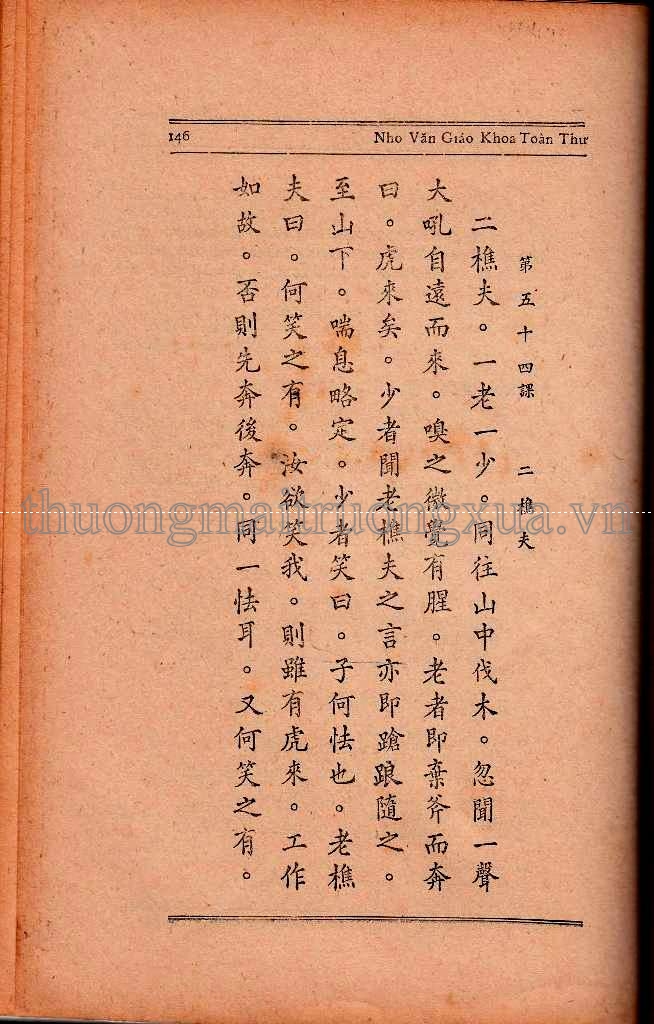 146 Nho Văn Giáo Khoa Toàn Thư
第五十四課 二樵夫
二樵夫。一老一少。同往山中伐木。忽聞一聲
大吼自遠而來。嗅之微覺有腥。老者即棄斧而奔
曰。虎來矣。少者聞老樵夫之言亦即蹌踉隨之。
至山下。喘息略定。少者笑曰。子何怯也。老樵
夫曰。何笑之有。汝欲笑我。則雖有虎來。工作
如故。否則先奔後奔。同一怯耳。又何笑之有。
thuongmaitruongxua.vn